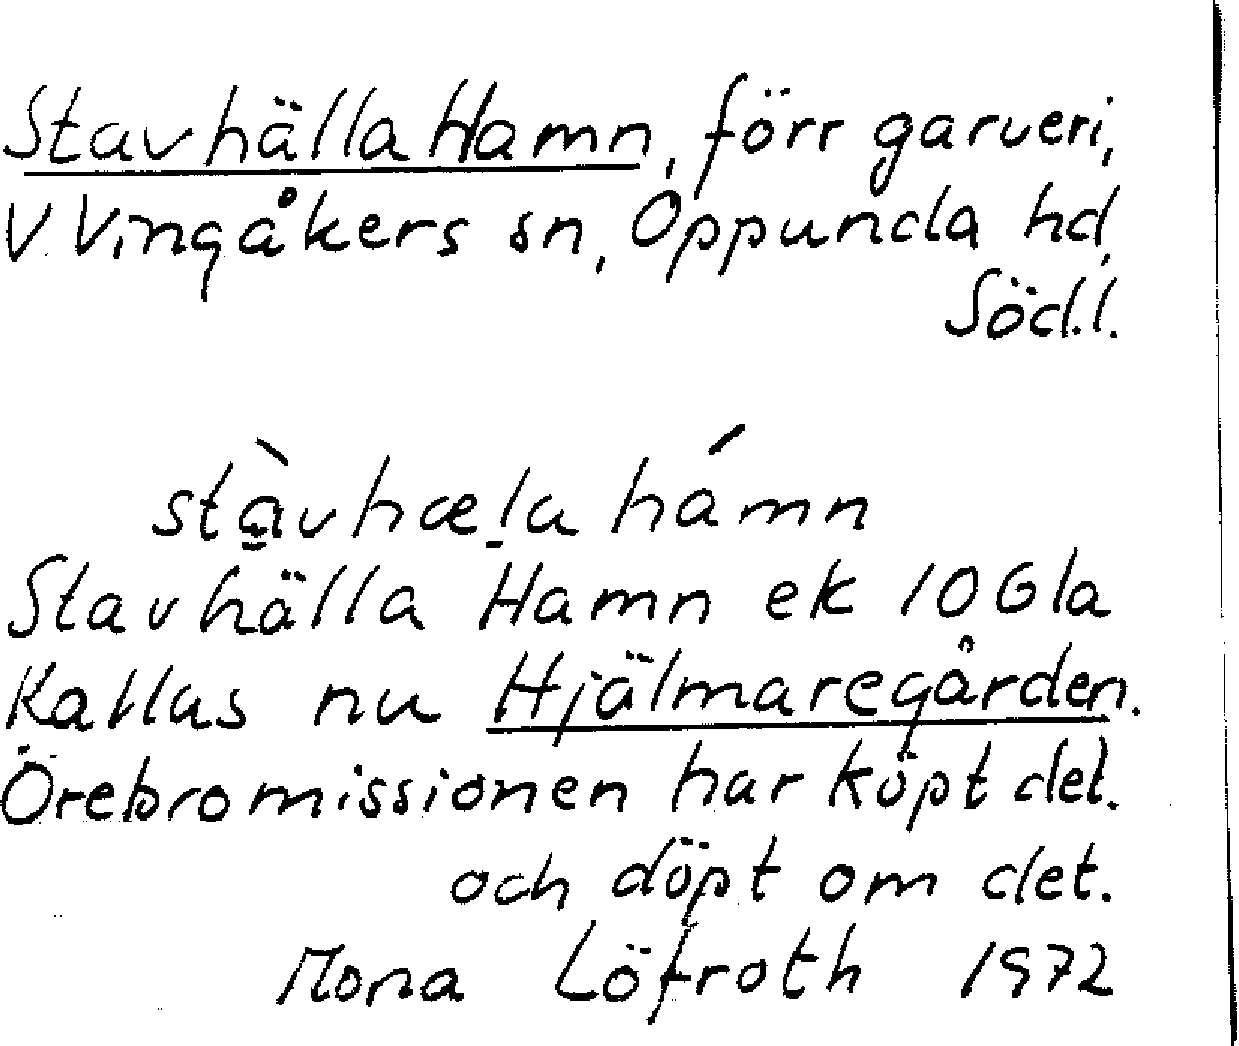 Stavhälla Hamn, förr garveri,
V. Vingåkers sn, Oppunda hd,
Söd.l.
stàvhæla hámn
Stavhälla Hamn ek 10G1a
Kallas nu Hjälmaregården.
Örebromissionen har köpt det.
och döpt om det.
Mona Löfroth 1972